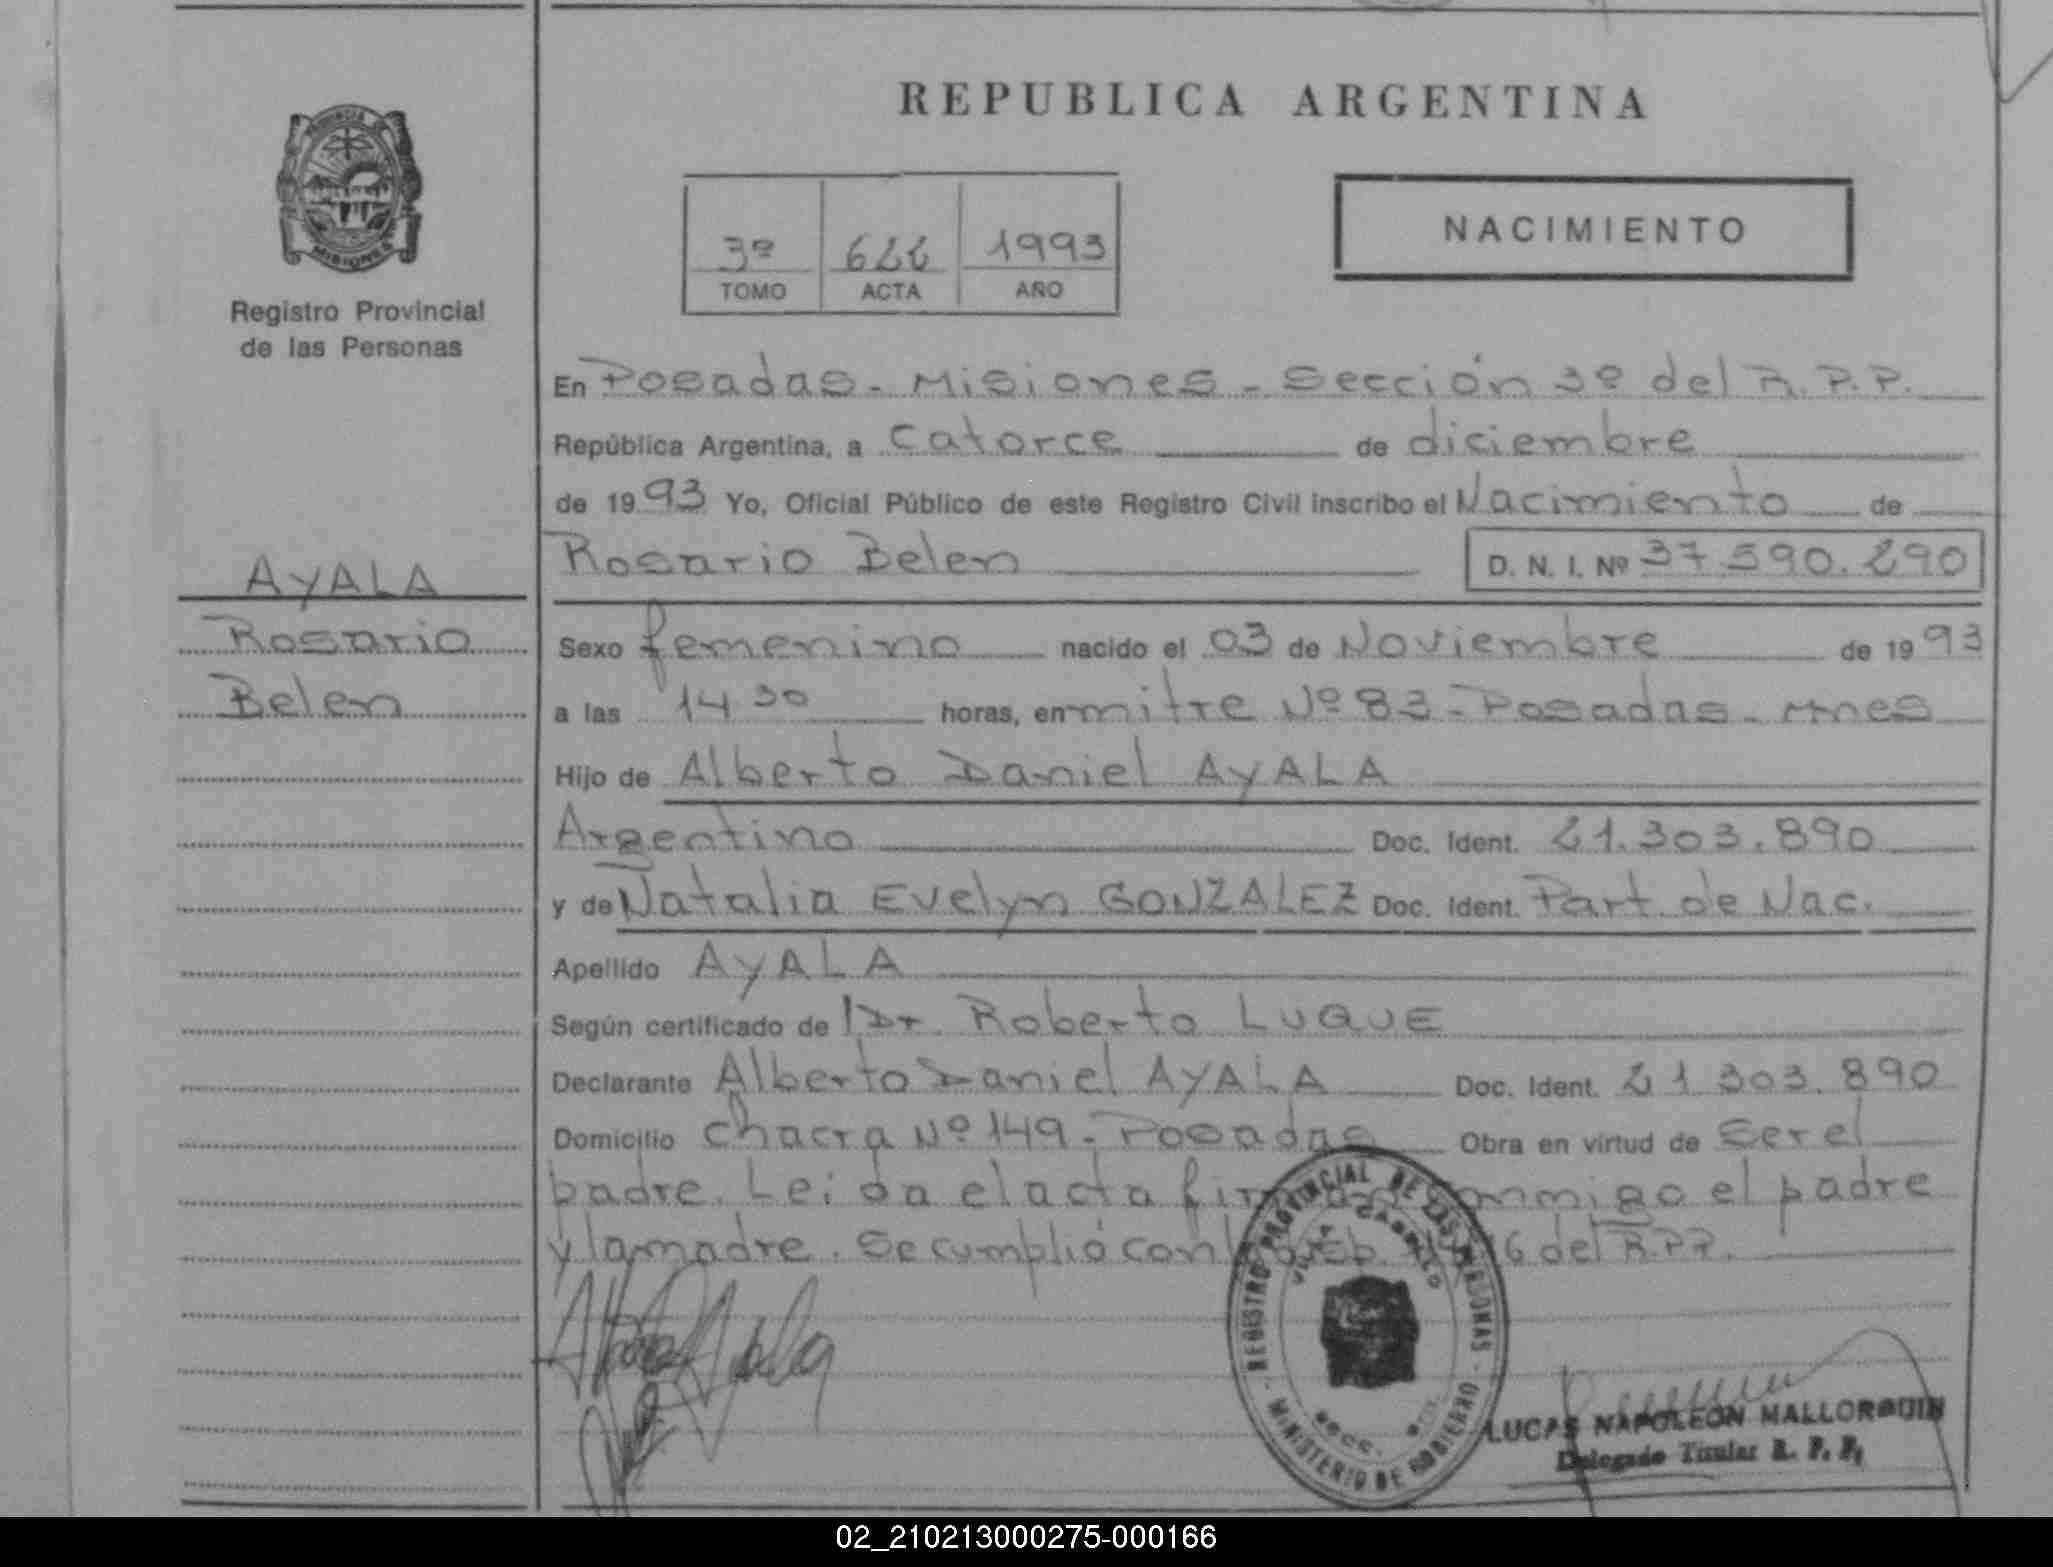 REPUBLICA ARGENTINA
PROVINCIA DE
MISIONES
Registro Provincial
de las Personas
3º 622 1993
TOMO ACTA AÑO
NACIMIENTO
En Posadas - Misiones - Sección 3º del R.P.P.
República Argentina, a catorce de diciembre
de 1993 Yo, Oficial Público de este Registro Civil inscribo el Nacimiento de
Rosario Belen D. N. I. Nº 37.590.290
AYALA
Rosario
Belen
Sexo femenino nacido el 03 de Noviembre de 1993
a las 14 30 horas, en mitre Nº 83 - Posadas - Mnes
Hijo de Alberto Daniel AYALA
Argentino Doc. Ident. 21.303.890
y de Natalia Evelyn GONZALEZ Doc. Ident. Part. de Nac.
Apellido AYALA
Según certificado de Dr. Roberto LUQUE
Declarante Alberto Daniel AYALA Doc. Ident. 21.303.890
Domicilio Chacra Nº 149 - Posadas Obra en virtud de ser el
padre. Leida el acta conmigo el padre
y la madre. Se cumplió con del R.P.P.
REGISTRO PROVINCIAL DE LAS PERSONAS
VILLA CABELLO
SECC.
MINISTERIO DE GOBIERNO
LUCAS NAPOLEON MALLORQUIN
Delegado Titular R. P. P.
02_210213000275-000166